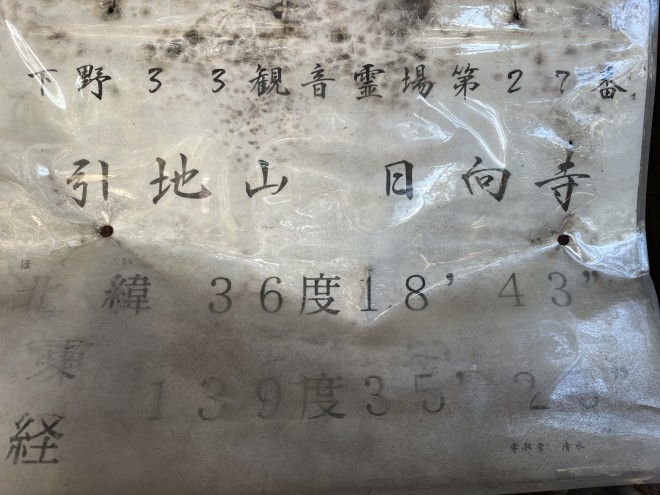 下野33観音霊場第27番
引地山 日向寺
ほく い
北緯 36度18’43”
東経 139度35’2”